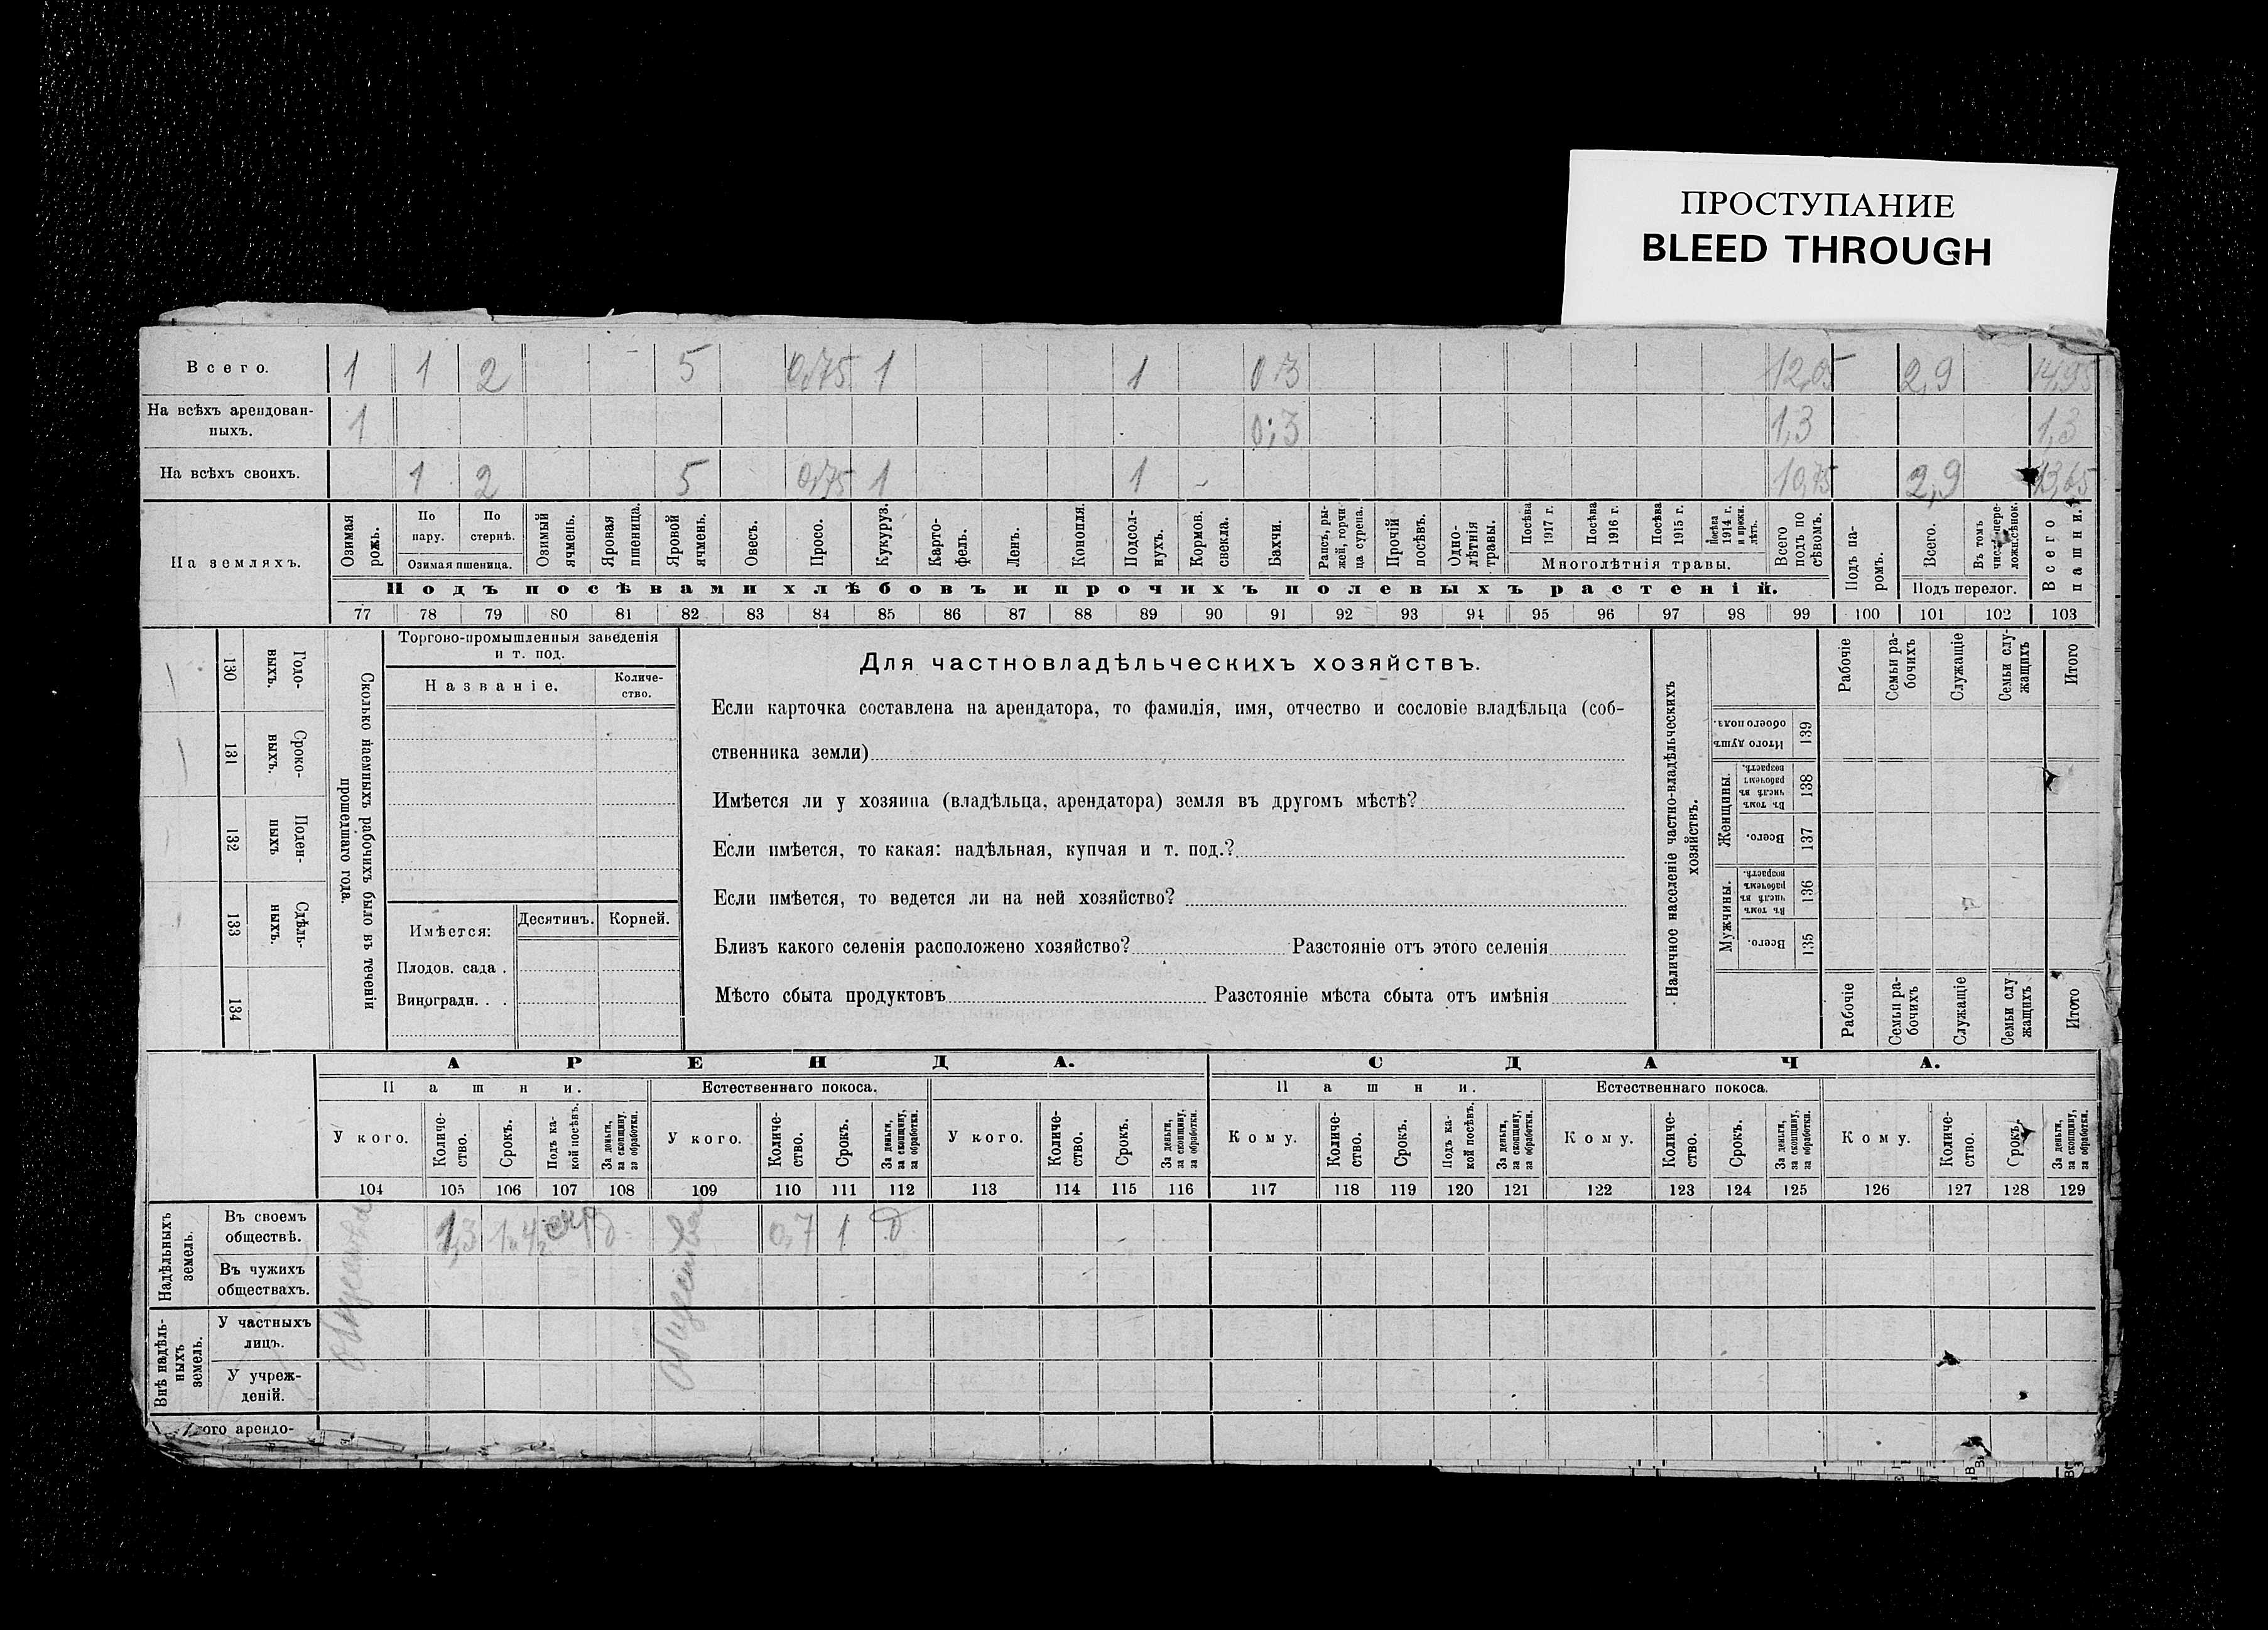 ПРОСТУПАНИЕ
BLEED THROUGH
Всего. 1 1 2 5 0,75 1 1 0,3 12,05 2,9 14,95
На всѣхъ арендован-
ныхъ. 1 0,3 1,3 1,3
На всѣхъ своихъ. 1 2 5 0,75 1 1 - 10,75 2,9 13,65
На земляхъ.
Озимая рожь.
По пару.
По стернѣ.
Озимая пшеница.
Озимый ячмень.
Яровая пшеница.
Яровой ячмень.
Овесъ.
Просо.
Кукуруз.
Карто-
фель.
Ленъ.
Конопля.
Подсол-
нухъ.
Кормов. свекла.
Бахчи.
Рапсъ, ры-
жей, горчи-
ца сурепа.
Прочій посѣвъ.
Одно-
лѣтнія травы.
Посѣва 1917 г.
Посѣва 1916 г.
Посѣва 1915 г.
Посѣва 1914 г. и прежн. лѣтъ.
Многолѣтнія травы.
Всего подъ по сѣвомъ.
Подъ па-
ромъ.
Всего.
Въ томъ числѣ пере-
ложн. сѣнок.
Подъ перелог.
Всего пашни.
Подъ посѣвами хлѣбовъ и прочихъ полевыхъ растеній.
77 78 79 80 81 82 83 84 85 86 87 88 89 90 91 92 93 94 95 96 97 98 99 100 101 102 103
130 Годо-
выхъ.
131 Сроко-
выхъ.
132 Поден-
ныхъ
133 Сдѣль-
ныхъ.
134
Сколько наемныхъ рабочихъ было въ теченіи
прошедшаго года.
Торгово-промышленныя заведенія
и т. под.
Названіе.
Количе-
ство.
Имѣется:
Десятинъ.
Корней.
Плодов. сада .
Виноградн. . .
Для частновладѣльческихъ хозяйствъ.
Если карточка составлена на арендатора, то фамилія, имя, отчество и сословіе владѣльца (соб-
ственника земли)
Имѣется ли у хозяина (владѣльца, арендатора) земля въ другомъ мѣстѣ?
Если имѣется, то какая: надѣльная, купчая и т. под.?
Если имѣется, то ведется ли на ней хозяйство?
Близъ какого селенія расположено хозяйство? Разстояніе отъ этого селенія
Мѣсто сбыта продуктовъ Разстояніе мѣста сбыта отъ имѣнія
Наличное населеніе частно-владѣльческихъ
хозяйствъ.
Рабочіе
Семьи ра-
бочихъ
Служащіе
Семьи слу-
жащихъ
Итого
Итого душъ обоего пола. 139
Женщины.
Въ томъ числѣ въ рабочемъ возрастѣ. 138
Всего. 137
Мужчины.
Въ томъ числѣ въ рабочемъ возрастѣ. 136
Всего. 135
Рабочіе
Семьи ра-
бочихъ
Служащіе
Семьи слу
жащихъ
Итого
АРЕНДА.
СДАЧА.
Пашни.
Естественнаго покоса.
Пашни.
Естественнаго покоса.
У кого.
Количе-
ство.
Срокъ.
Подъ ка-
кой посѣвъ.
За деньги, за скопщину, за обработки.
У кого.
Количе-
ство.
Срокъ.
За деньги, за скопщину, за обработки.
У кого.
Количе-
ство.
Срокъ.
За деньги, за скопщину, за обработки.
Кому.
Количе-
ство.
Срокъ.
Подъ ка-
кой посѣвъ.
За деньги, за скопщину, за обработки.
Кому.
Количе-
ство.
Срокъ.
За деньги, за скопщину, за обработки.
Кому.
Количе-
ство.
Срокъ.
За деньги, за скопщину, за обработки.
104 105 106 107 108 109 110 111 112 113 114 115 116 117 118 119 120 121 122 123 124 125 126 127 128 129
Надѣльныхъ
земель.
Въ своемъ
обществѣ. 1,3 0,7 1 д
общества
общества
Въ чужихъ
обществахъ.
Внѣ надѣль-
ныхъ
земель.
У частныхъ
лицъ.
У учреж-
деній.
ого арендо-